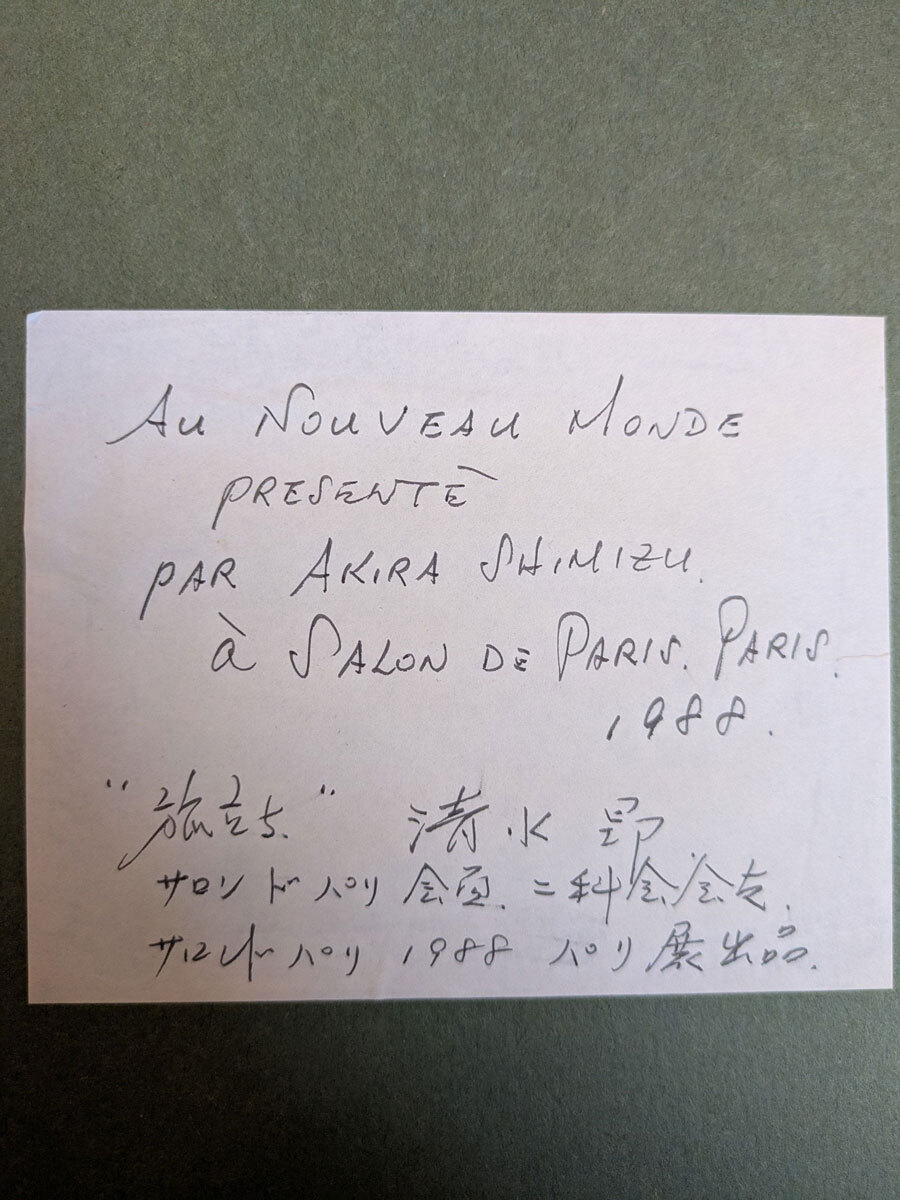 AU NOUVEAU MONDE
PRESENTÈ
PAR AKIRA SHIMIZU.
à SALON DE PARIS. PARIS.
1988.
"旅立ち." 清水 昴
サロンドパリ 会員. 二科会会友.
サロンドパリ 1988 パリ展出品.